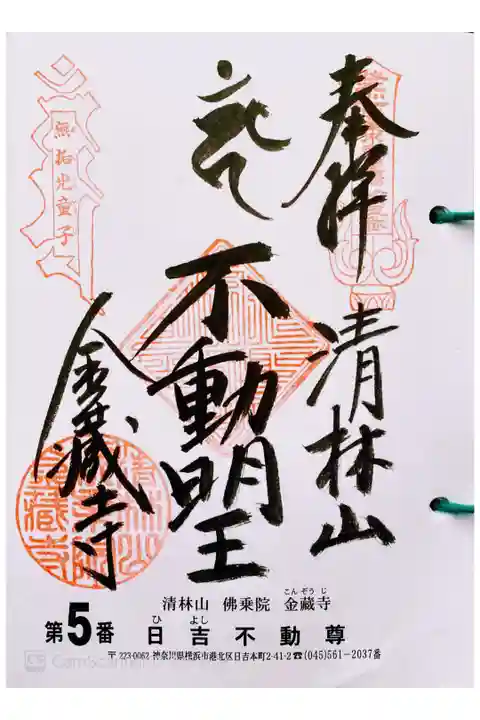 奉拝
清林山
不動明王
金蔵寺
無垢光童子
清林山 佛乗院 金蔵寺
こんぞうじ
第5番 日吉不動尊
ひよし
〒223-0062 神奈川県横浜市港北区日吉本町2-41-2 ☎(045)561-2037番
CamScanner